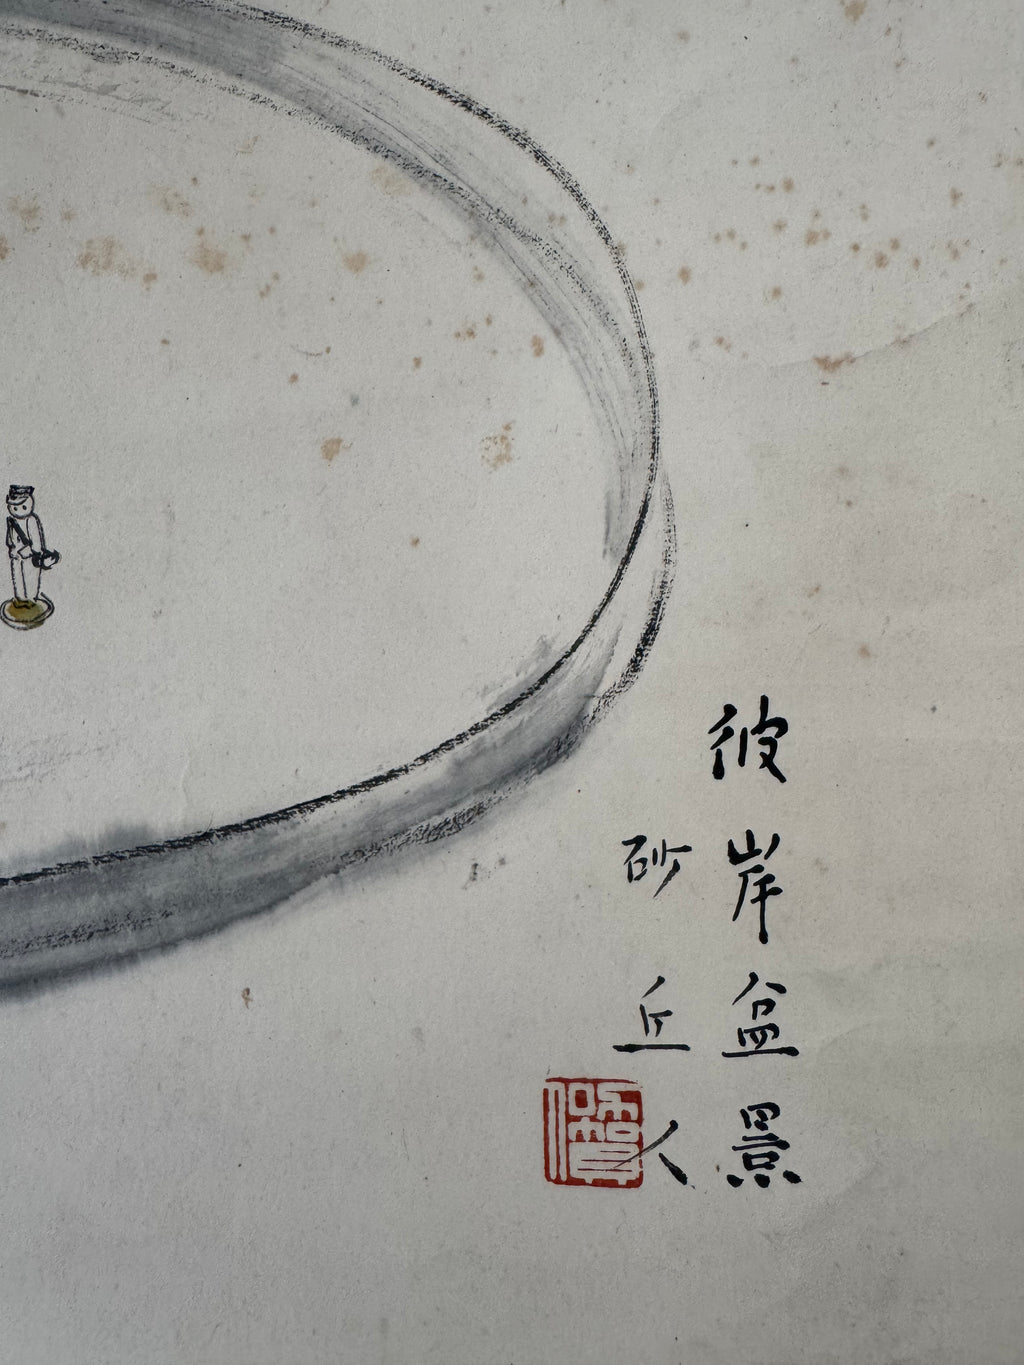 彼岸盆景
砂丘人